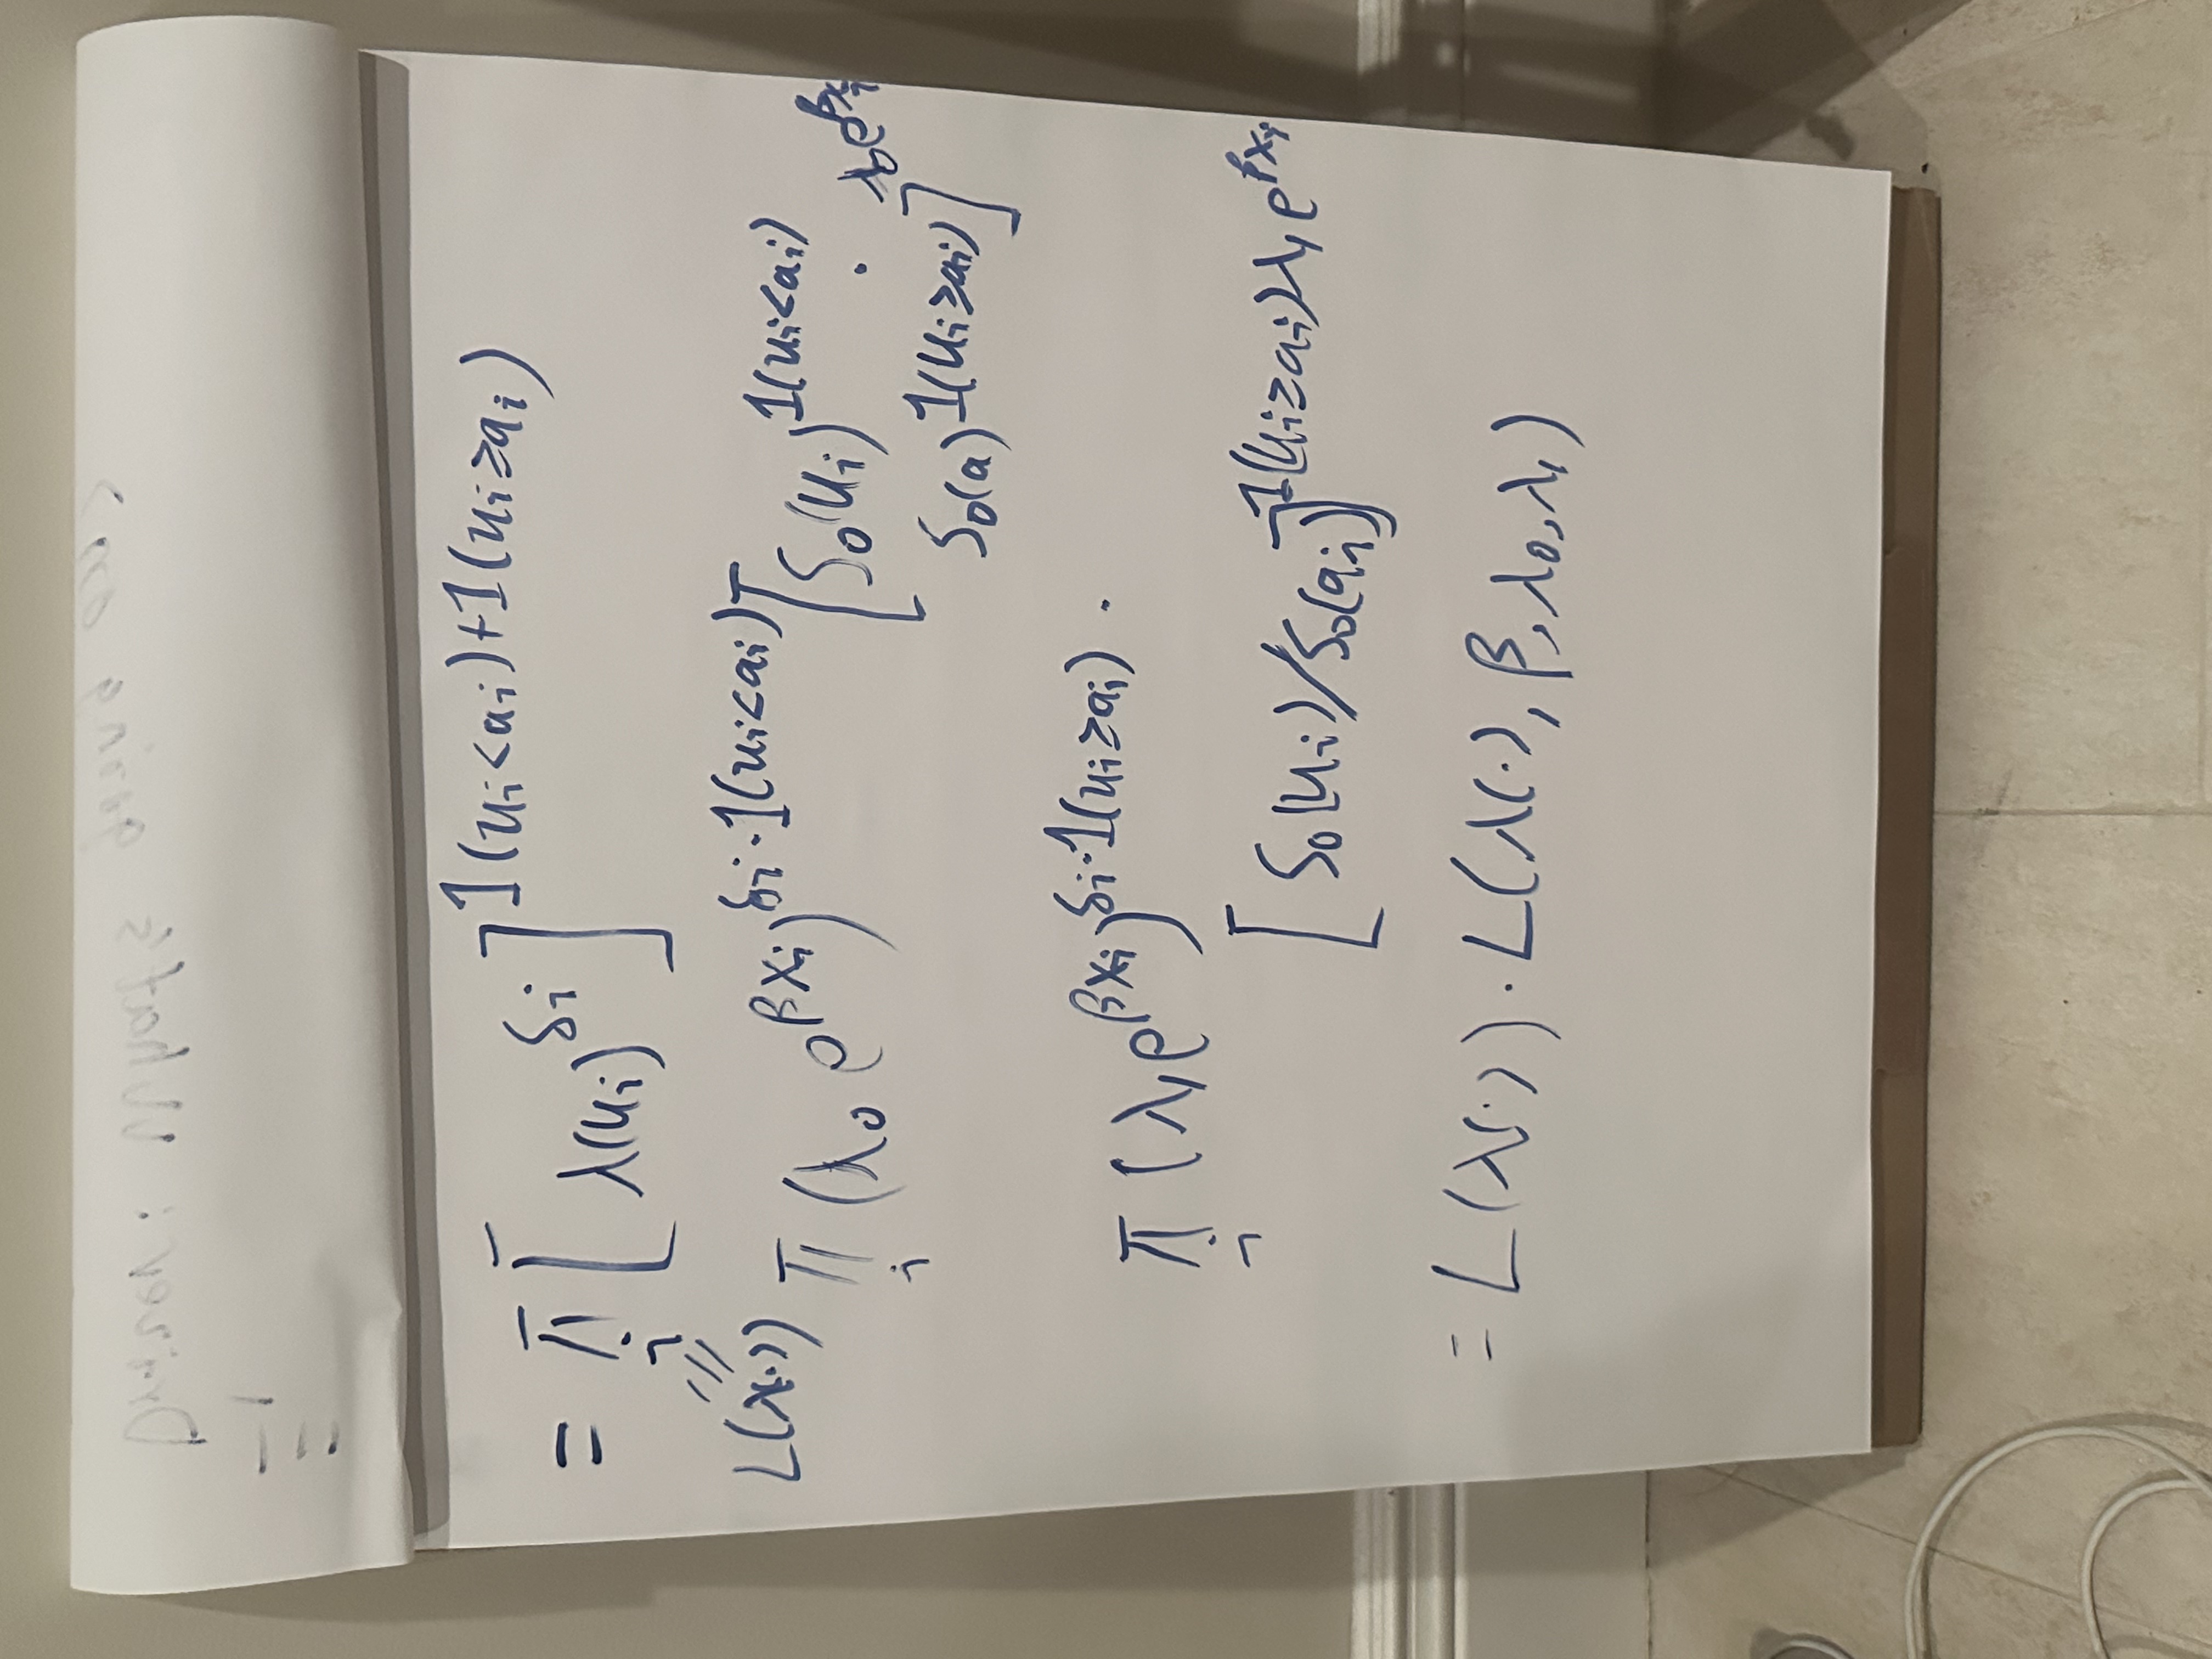 = π_i [ λ(u_i)^{δ_i} ]^{1(u_i<a_i)+1(u_i≥a_i)}
L(λ(·))
π_i (λ_0 e^{βX_i})^{δ_i·1(u_i<a_i)} [S_0(u_i)^{1(u_i<a_i)} ·
S_0(a)^{1(u_i≥a_i)}]^{λ_0 e^{βX_i}}
π_i (λ_1 e^{βX_i})^{δ_i·1(u_i≥a_i)} ·
[S_0(u_i)/S_0(a_i)]^{1(u_i≥a_i)λ_1 e^{βX_i}}
= L(λ(·)) · L(λ(·), β, λ_0, λ_1)